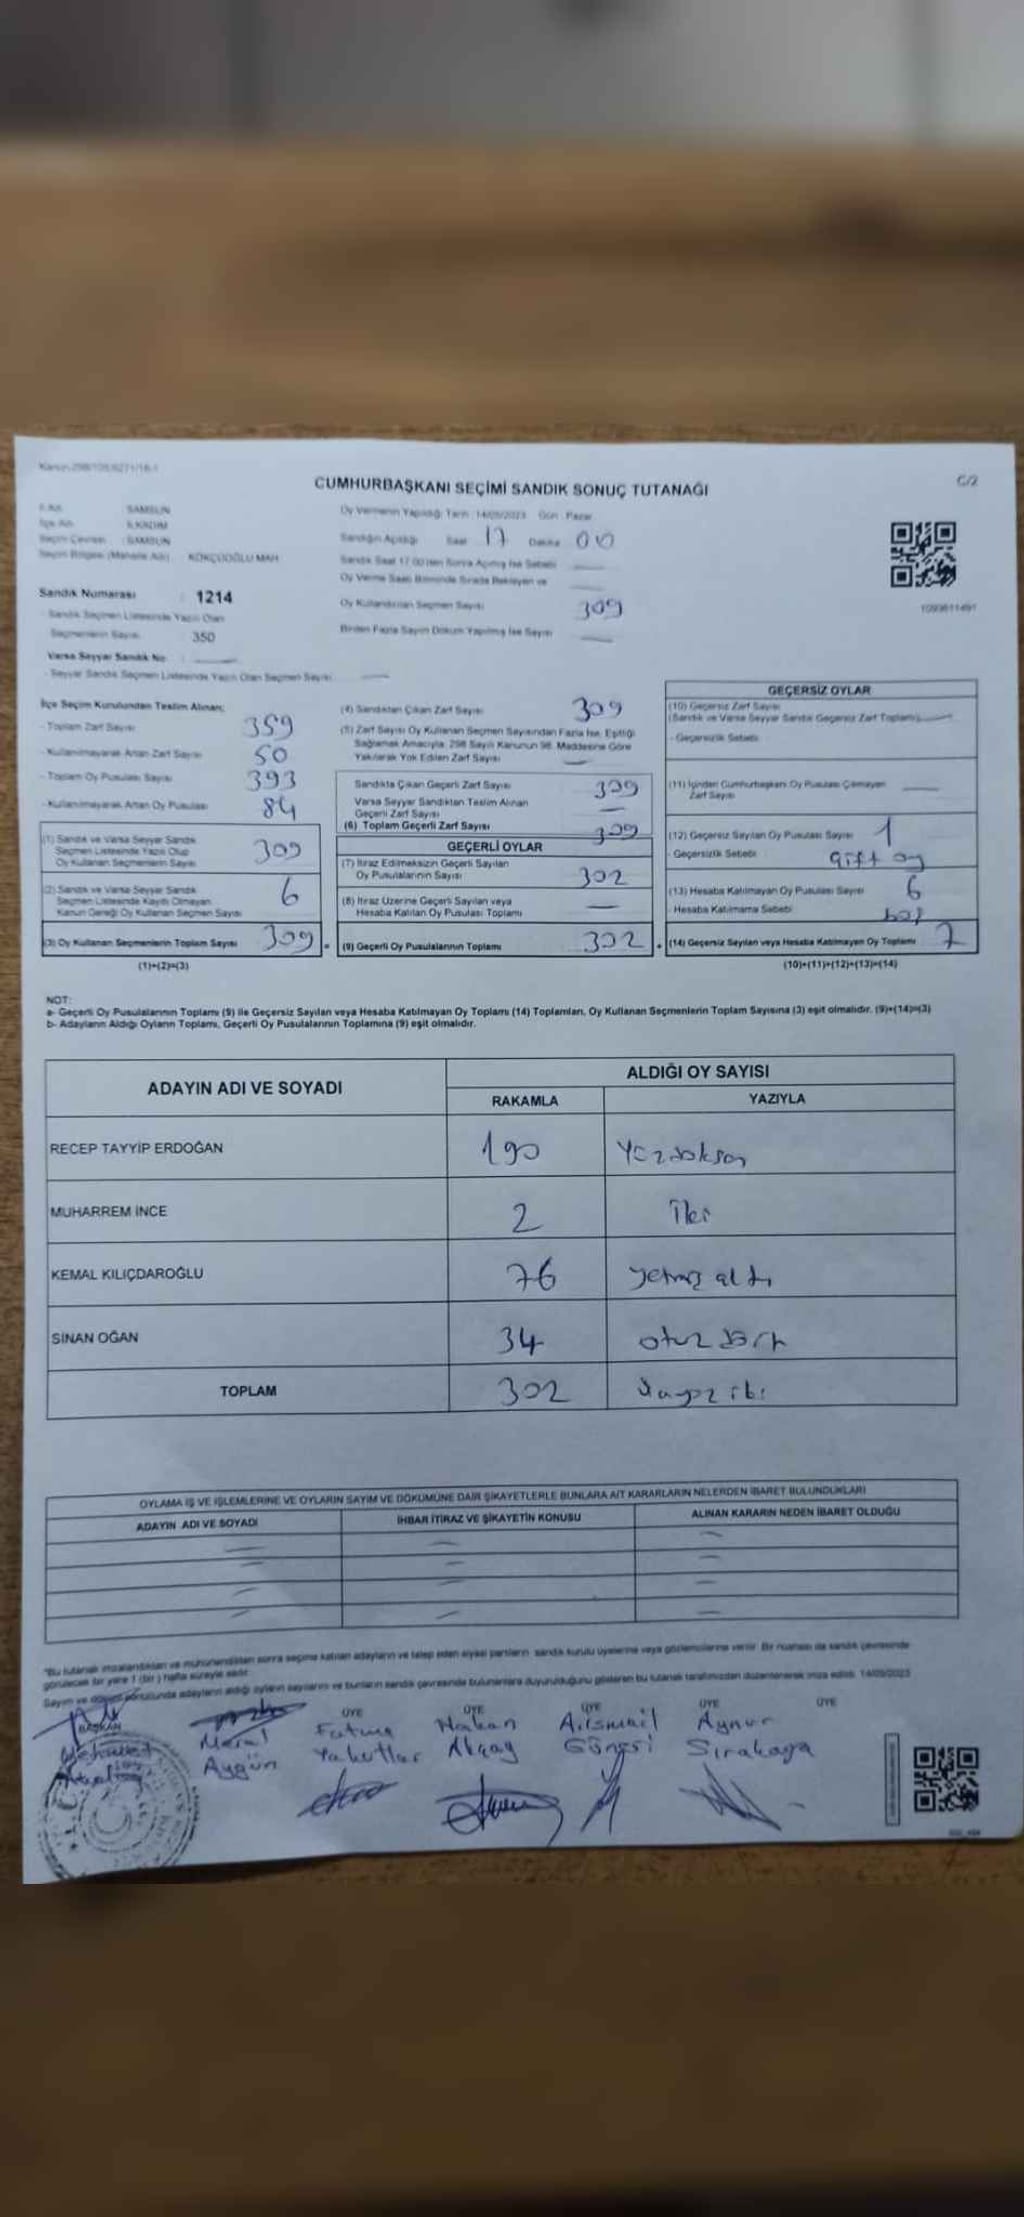 CUMHURBAŞKANI SEÇİMİ SANDIK SONUÇ TUTANAĞI
C/2
İl Adı SAMSUN
İlçe Adı İLKADIM
Seçim Çevresi : SAMSUN
Seçim Bölgesi (Mahalle Adı) : KÖKÇÜOĞLU MAH
Sandık Numarası : 1214
Sandık Seçmen Listesinde Yazılı Olan
Seçmenlerin Sayısı 350
Varsa Seyyar Sandık No :
Seyyar Sandık Seçmen Listesinde Yazılı Olan Seçmen Sayısı
Oy Vermenin Yapıldığı Tarih : 14/05/2023 Gün : Pazar
Sandığın Açıldığı Saat 17 Dakika 00
Sandık Saat 17.00'den Sonra Açılmış İse Sebebi
Oy Verme Saati Bitiminde Sırada Bekleyen ve
Oy Kullandırılan Seçmen Sayısı 309
Birden Fazla Sayım Döküm Yapılmış İse Sayısı
İlçe Seçim Kurulundan Teslim Alınan;
- Toplam Zarf Sayısı 359
- Kullanılmayarak Artan Zarf Sayısı 50
- Toplam Oy Pusulası Sayısı 393
- Kullanılmayarak Artan Oy Pusulası 84
(1) Sandık ve Varsa Seyyar Sandık
Seçmen Listesinde Yazılı Olup
Oy Kullanan Seçmenlerin Sayısı 309
(2) Sandık ve Varsa Seyyar Sandık
Seçmen Listesinde Kayıtlı Olmayan
Kanun Gereği Oy Kullanan Seçmen Sayısı 6
(3) Oy Kullanan Seçmenlerin Toplam Sayısı 309
(1)+(2)=(3)
(4) Sandıktan Çıkan Zarf Sayısı 309
(5) Zarf Sayısı Oy Kullanan Seçmen Sayısından Fazla İse, Eşitliği
Sağlamak Amacıyla, 298 Sayılı Kanunun 98. Maddesine Göre
Yakılarak Yok Edilen Zarf Sayısı
Sandıkta Çıkan Geçerli Zarf Sayısı 309
Varsa Seyyar Sandıktan Teslim Alınan
Geçerli Zarf Sayısı
(6) Toplam Geçerli Zarf Sayısı 309
GEÇERLİ OYLAR
(7) İtiraz Edilmeksizin Geçerli Sayılan
Oy Pusulalarının Sayısı 302
(8) İtiraz Üzerine Geçerli Sayılan veya
Hesaba Katılan Oy Pusulası Toplamı
(9) Geçerli Oy Pusulalarının Toplamı 302
GEÇERSİZ OYLAR
(10) Geçersiz Zarf Sayısı
(Sandık ve Varsa Seyyar Sandık Geçersiz Zarf Toplamı)
- Geçersizlik Sebebi
(11) İçinden Cumhurbaşkanı Oy Pusulası Çıkmayan
Zarf Sayısı
(12) Geçersiz Sayılan Oy Pusulası Sayısı 1
- Geçersizlik Sebebi Çift oy
(13) Hesaba Katılmayan Oy Pusulası Sayısı 6
- Hesaba Katılmama Sebebi boş
(14) Geçersiz Sayılan veya Hesaba Katılmayan Oy Toplamı 7
(10)+(11)+(12)+(13)=(14)
NOT:
a- Geçerli Oy Pusulalarının Toplamı (9) ile Geçersiz Sayılan veya Hesaba Katılmayan Oy Toplamı (14) Toplamları, Oy Kullanan Seçmenlerin Toplam Sayısına (3) eşit olmalıdır. (9)+(14)=(3)
b- Adayların Aldığı Oyların Toplamı, Geçerli Oy Pusulalarının Toplamına (9) eşit olmalıdır.
ADAYIN ADI VE SOYADI
ALDIĞI OY SAYISI
RAKAMLA YAZIYLA
RECEP TAYYİP ERDOĞAN 190 Yüzdoksan
MUHARREM İNCE 2 İki
KEMAL KILIÇDAROĞLU 76 yetmiş altı
SİNAN OĞAN 34 otuz dört
TOPLAM 302 üçyüz iki
OYLAMA İŞ VE İŞLEMLERİNE VE OYLARIN SAYIM VE DÖKÜMÜNE DAİR ŞİKAYETLERLE BUNLARA AİT KARARLARIN NELERDEN İBARET BULUNDUKLARI
ADAYIN ADI VE SOYADI İHBAR İTİRAZ VE ŞİKAYETİN KONUSU ALINAN KARARIN NEDEN İBARET OLDUĞU
"Bu tutanak imzalandıktan ve mühürlendikten sonra seçime katılan adayların ve talep eden siyasi partilerin sandık kurulu üyelerine veya gözlemcilerine verilir. Bir nüshası da sandık çevresinde
görülecek bir yere 1 (bir) hafta süreyle asılır.
Sayım ve döküm sonucunda adayların aldığı oyların sayılarını ve bunların sandık çevresinde bulunanlara duyurulduğunu gösteren bu tutanak tarafımızdan düzenlenerek imza edildi. 14/05/2023
BAŞKAN ÜYE ÜYE ÜYE ÜYE ÜYE
Mehmet Meral Fatma Hakan Ali ismail Aynur
Aygün Yakutlar Akçay Güneşi Sırakaya